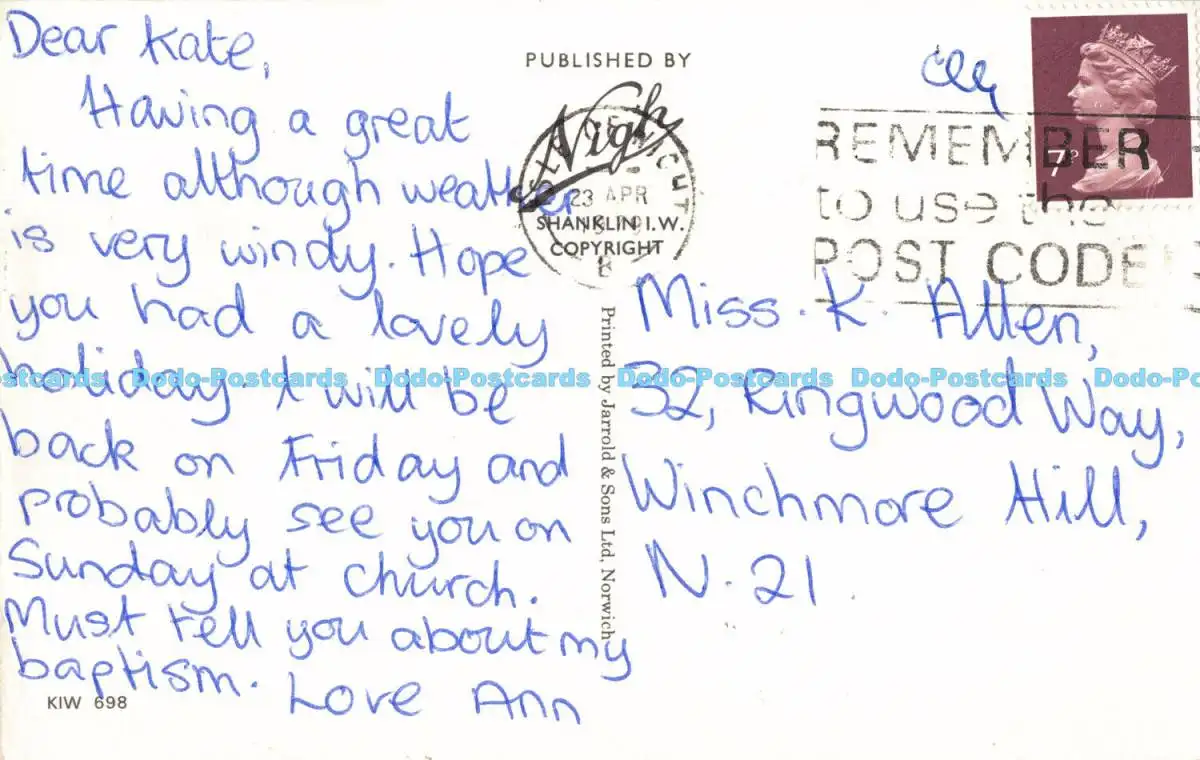 Dear Kate,
Having a great
time although weather
is very windy. Hope
you had a lovely
holiday. I will be
back on Friday and
probably see you on
Sunday at church.
Must tell you about my
baptism. Love Ann
KIW 698
PUBLISHED BY
Nigh
SHANKLIN I.W.
COPYRIGHT
23 APR
Printed by Jarrold & Sons Ltd, Norwich
REMEMBER
to use the
POST CODE
7P
Miss. K. Allen,
32, Ringwood Way,
Winchmore Hill,
N. 21.
Dodo-Postcards Dodo-Postcards Dodo-Postcards Dodo-Postcards Dodo-Postcards